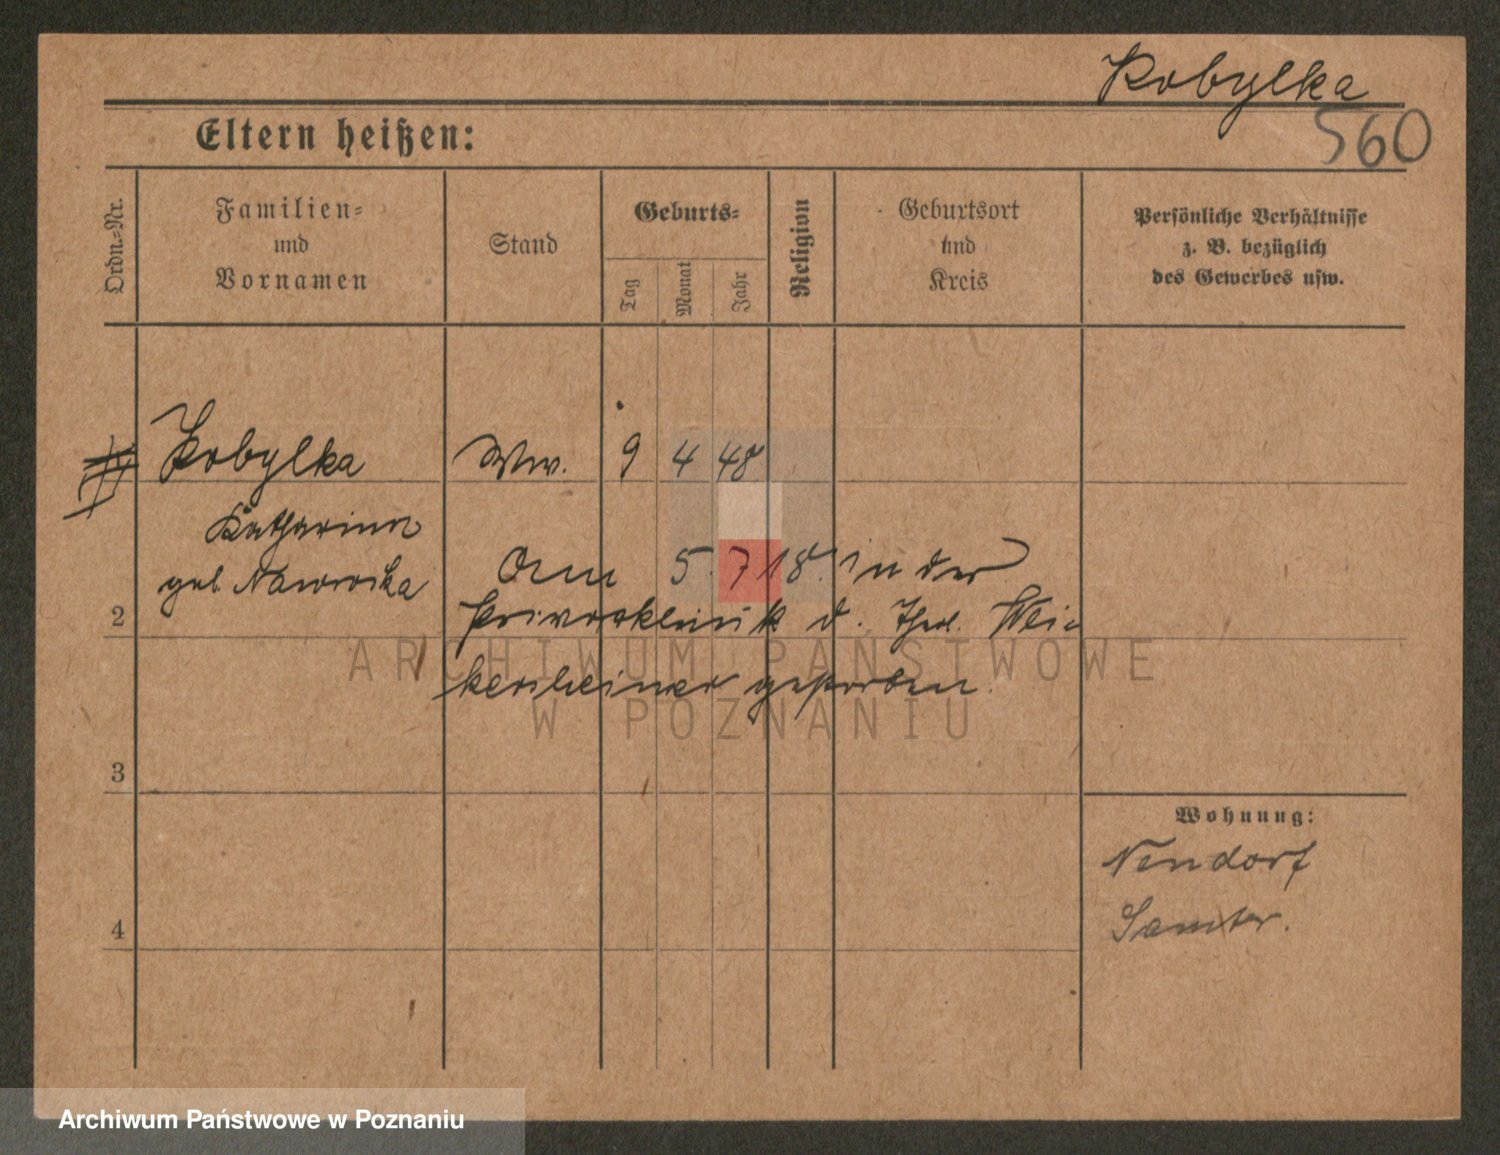 Kobylka
560
Eltern heißen:
Ordn.-Nr.
Familien-
und
Vornamen
Stand
Geburts-
Tag
Monat
Jahr
Religion
Geburtsort
und
Kreis
Persönliche Verhältnisse
z. B. bezüglich
des Gewerbes usw.
Kobylka Ww. 9 4 48
Katharina
geb. Nawrocka
Am 5. 7 18. in der
2
Privatklinik d.
gestorben.
ARCHIWUM PAŃSTWOWE
W POZNANIU
3
Wohnung:
Neudorf
Samter.
4
Archiwum Państwowe w Poznaniu